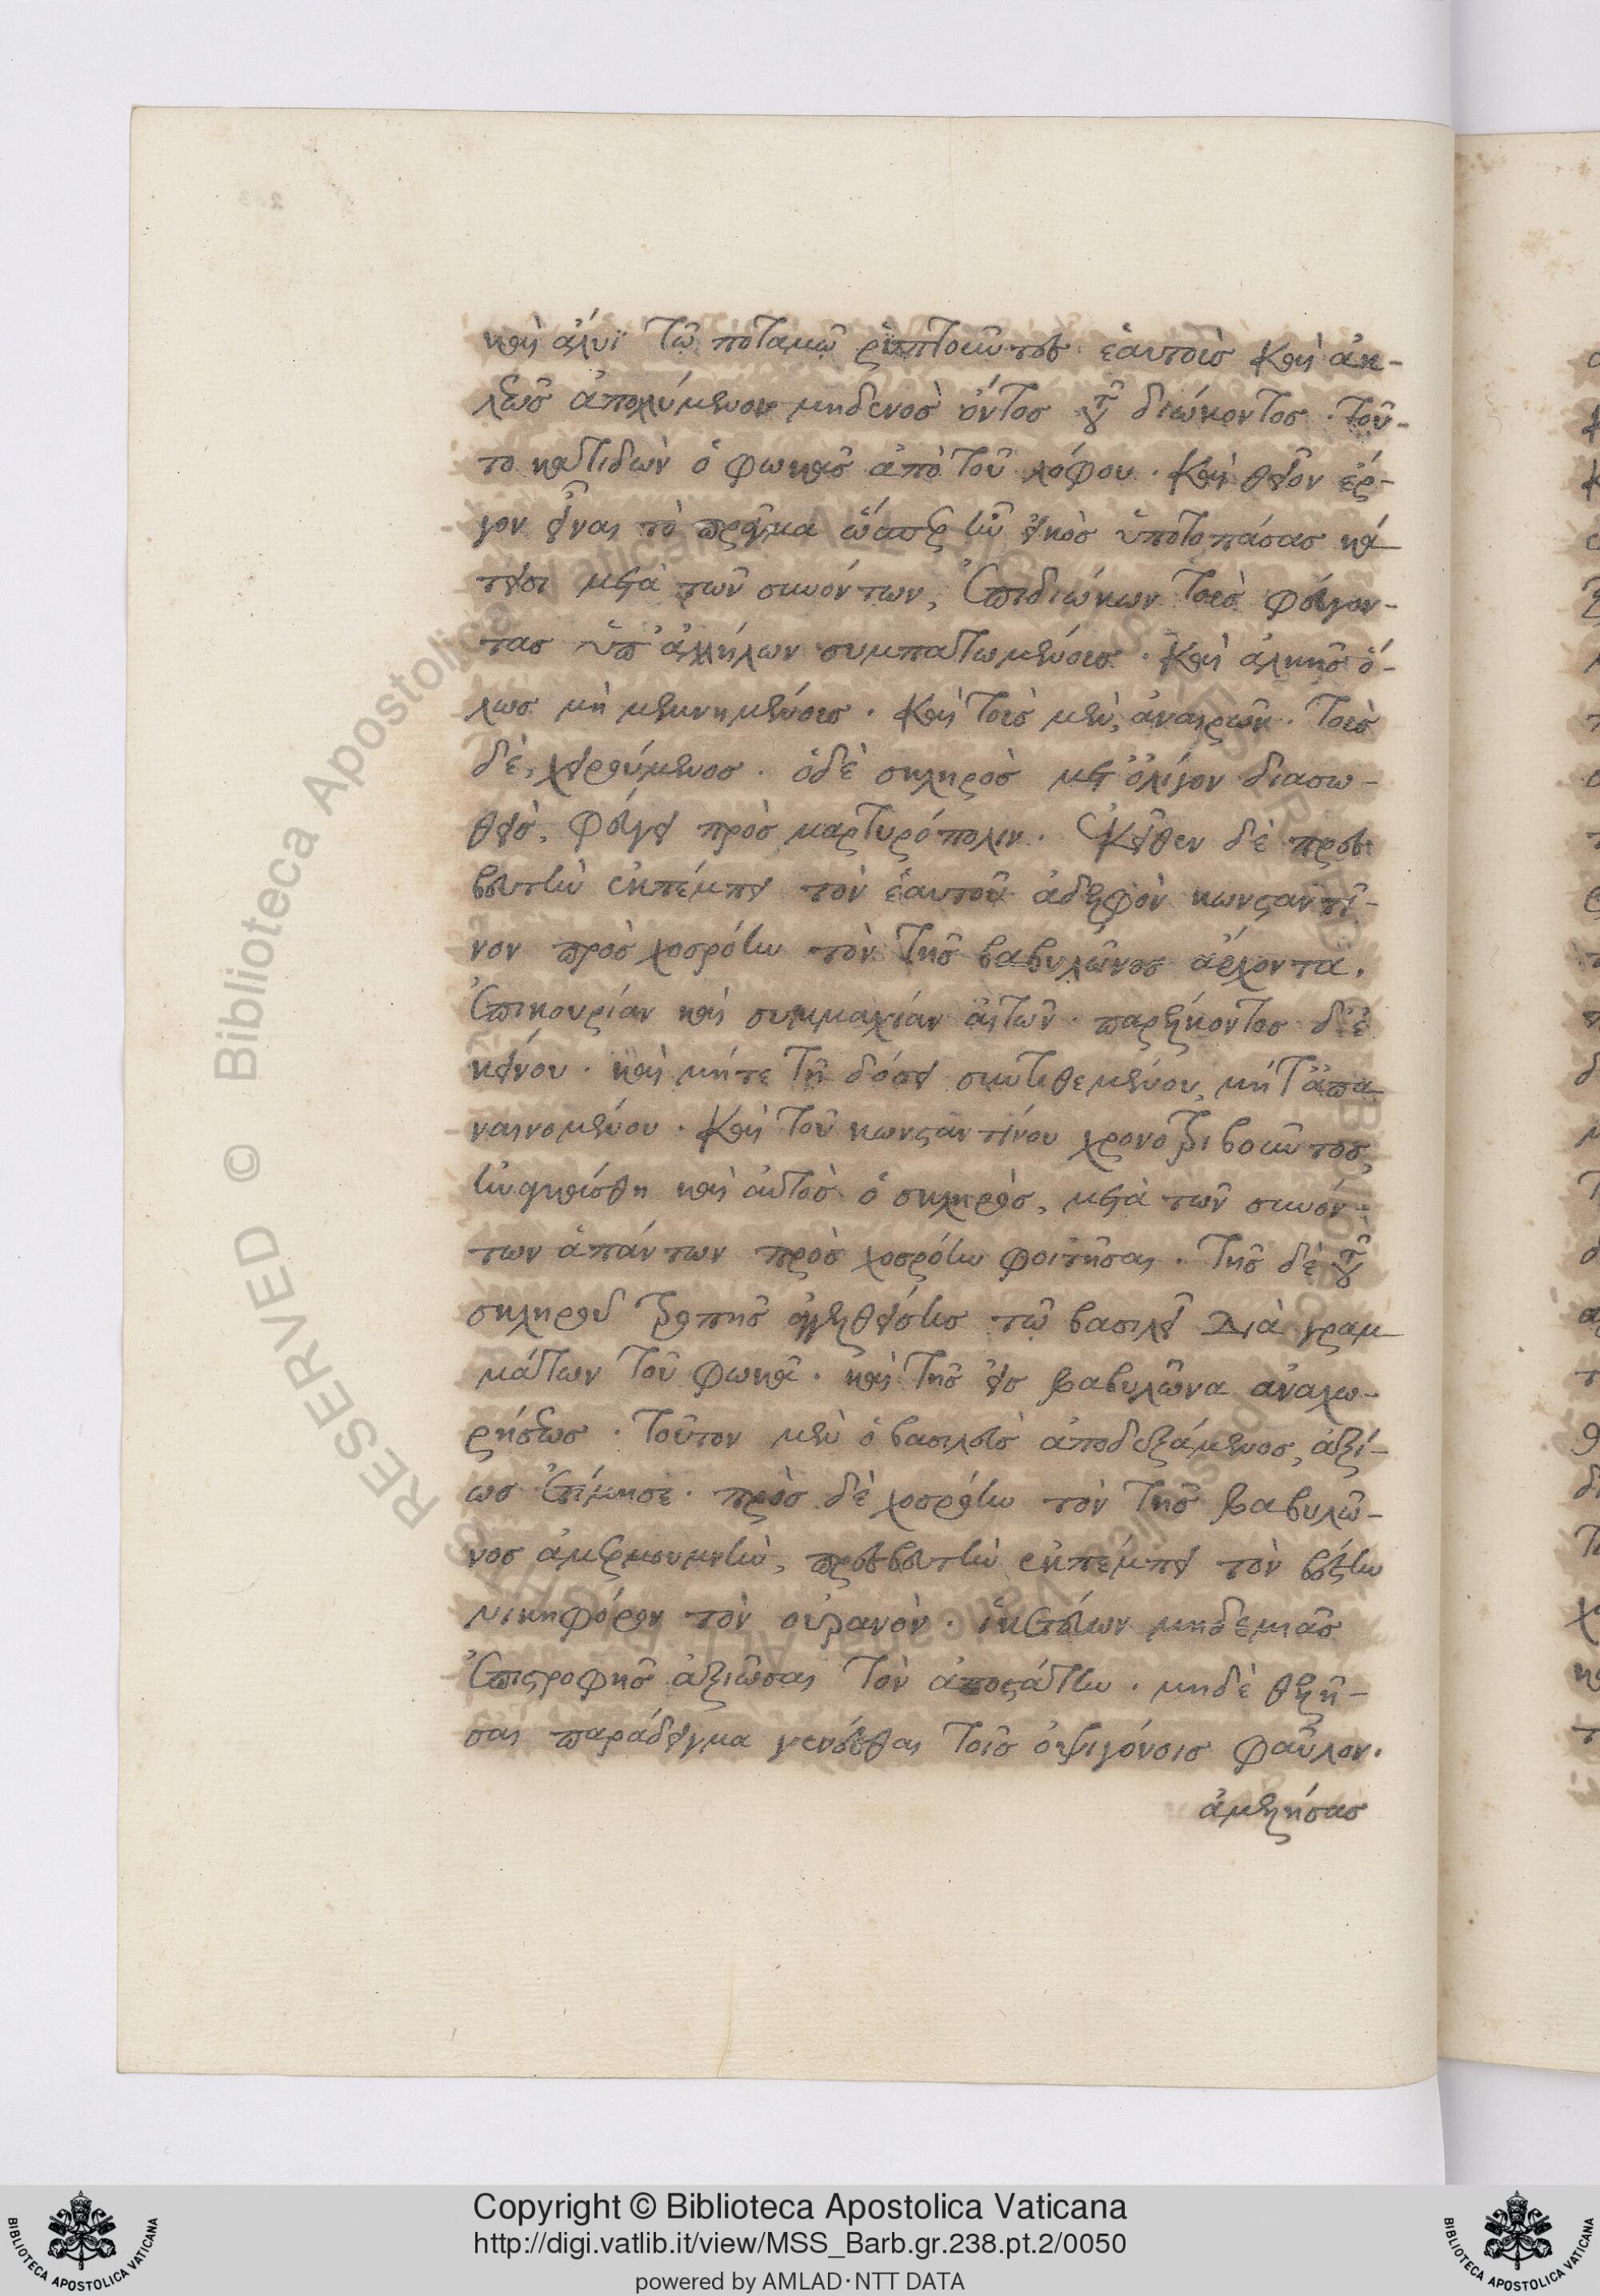 καὶ ἅλυϊ τῷ ποταμῷ ῥιπτοῦντες ἑαυτοὺς καὶ ἀκ-
λεῶς ἀπολλύμενον μηδενὸς ὄντος τοῦ διώκοντος. τοῦ-
το κατιδὼν ὁ φωκᾶς ἀπὸ τοῦ λόφου. καὶ θεῖον ἔρ-
γον εἶναι τὸ πρᾶγμα ὥσπερ ἦν εἰκὸς ὑποτοπάσας κά
τεισι μετὰ τῶν συνόντων, ἐπιδιώκων τοὺς φεύγον-
τας ὑπ' ἀλλήλων συμπατωμένους. καὶ ἀλκῆς ὅ-
λως μὴ μεμνημένους. καὶ τοὺς μὲν, ἀναιρῶν. τοὺς
δὲ, χειρούμενος. ὁ δὲ σκληρὸς μετ' ὀλίγον διασω-
θεὶς, φεύγει πρὸς μαρτυρόπολιν. ἐκεῖθεν δὲ πρεσ
βευτὴν ἐκπέμπει τὸν ἑαυτοῦ ἀδελφὸν κωνσταντῖ-
νον πρὸς χοσρόην τὸν τῆς βαβυλῶνος ἄρχοντα.
ἐπικουρίαν καὶ συμμαχίαν αἰτῶν. παρέλκοντος δ' ἐ
κείνου. καὶ μήτε τῇ δόσει συντιθεμένου, μήτ' ἀπα
ναινομένου. καὶ τοῦ κωνσταντίνου χρονοτριβοῦντος,
ἠναγκάσθη καὶ αὐτὸς ὁ σκληρὸς, μετὰ τῶν συνόν-
των ἁπάντων πρὸς χοσρόην φοιτῆσαι. τῆς δὲ τοῦ
σκληροῦ τροπῆς ἀγγελθείσης τῷ βασιλεῖ διὰ γραμ
μάτων τοῦ φωκᾶ. καὶ τῆς εἰς βαβυλῶνα ἀναχω-
ρήσεως. τοῦτον μὲν ὁ βασιλεὺς ἀποδεξάμενος, ἀξί-
ως ἐτίμησε. πρὸς δὲ χοσρόην τὸν τῆς βαβυλῶ-
νος ἀμερμουμνὴν, πρεσβευτὴν ἐκπέμπει τὸν βέστην
νικηφόρον τὸν οὐρανὸν. ἱκετεύων μηδεμιᾶς
ἐπιστροφῆς ἀξιῶσαι τὸν ἀποστάτην. μηδὲ θελῆ-
σαι παράδειγμα γενέσθαι τοῖς ὀψιγόνοις φαῦλον.
ἀμελήσας
Copyright © Biblioteca Apostolica Vaticana
http://digi.vatlib.it/view/MSS_Barb.gr.238.pt.2/0050
powered by AMLAD·NTT DATA